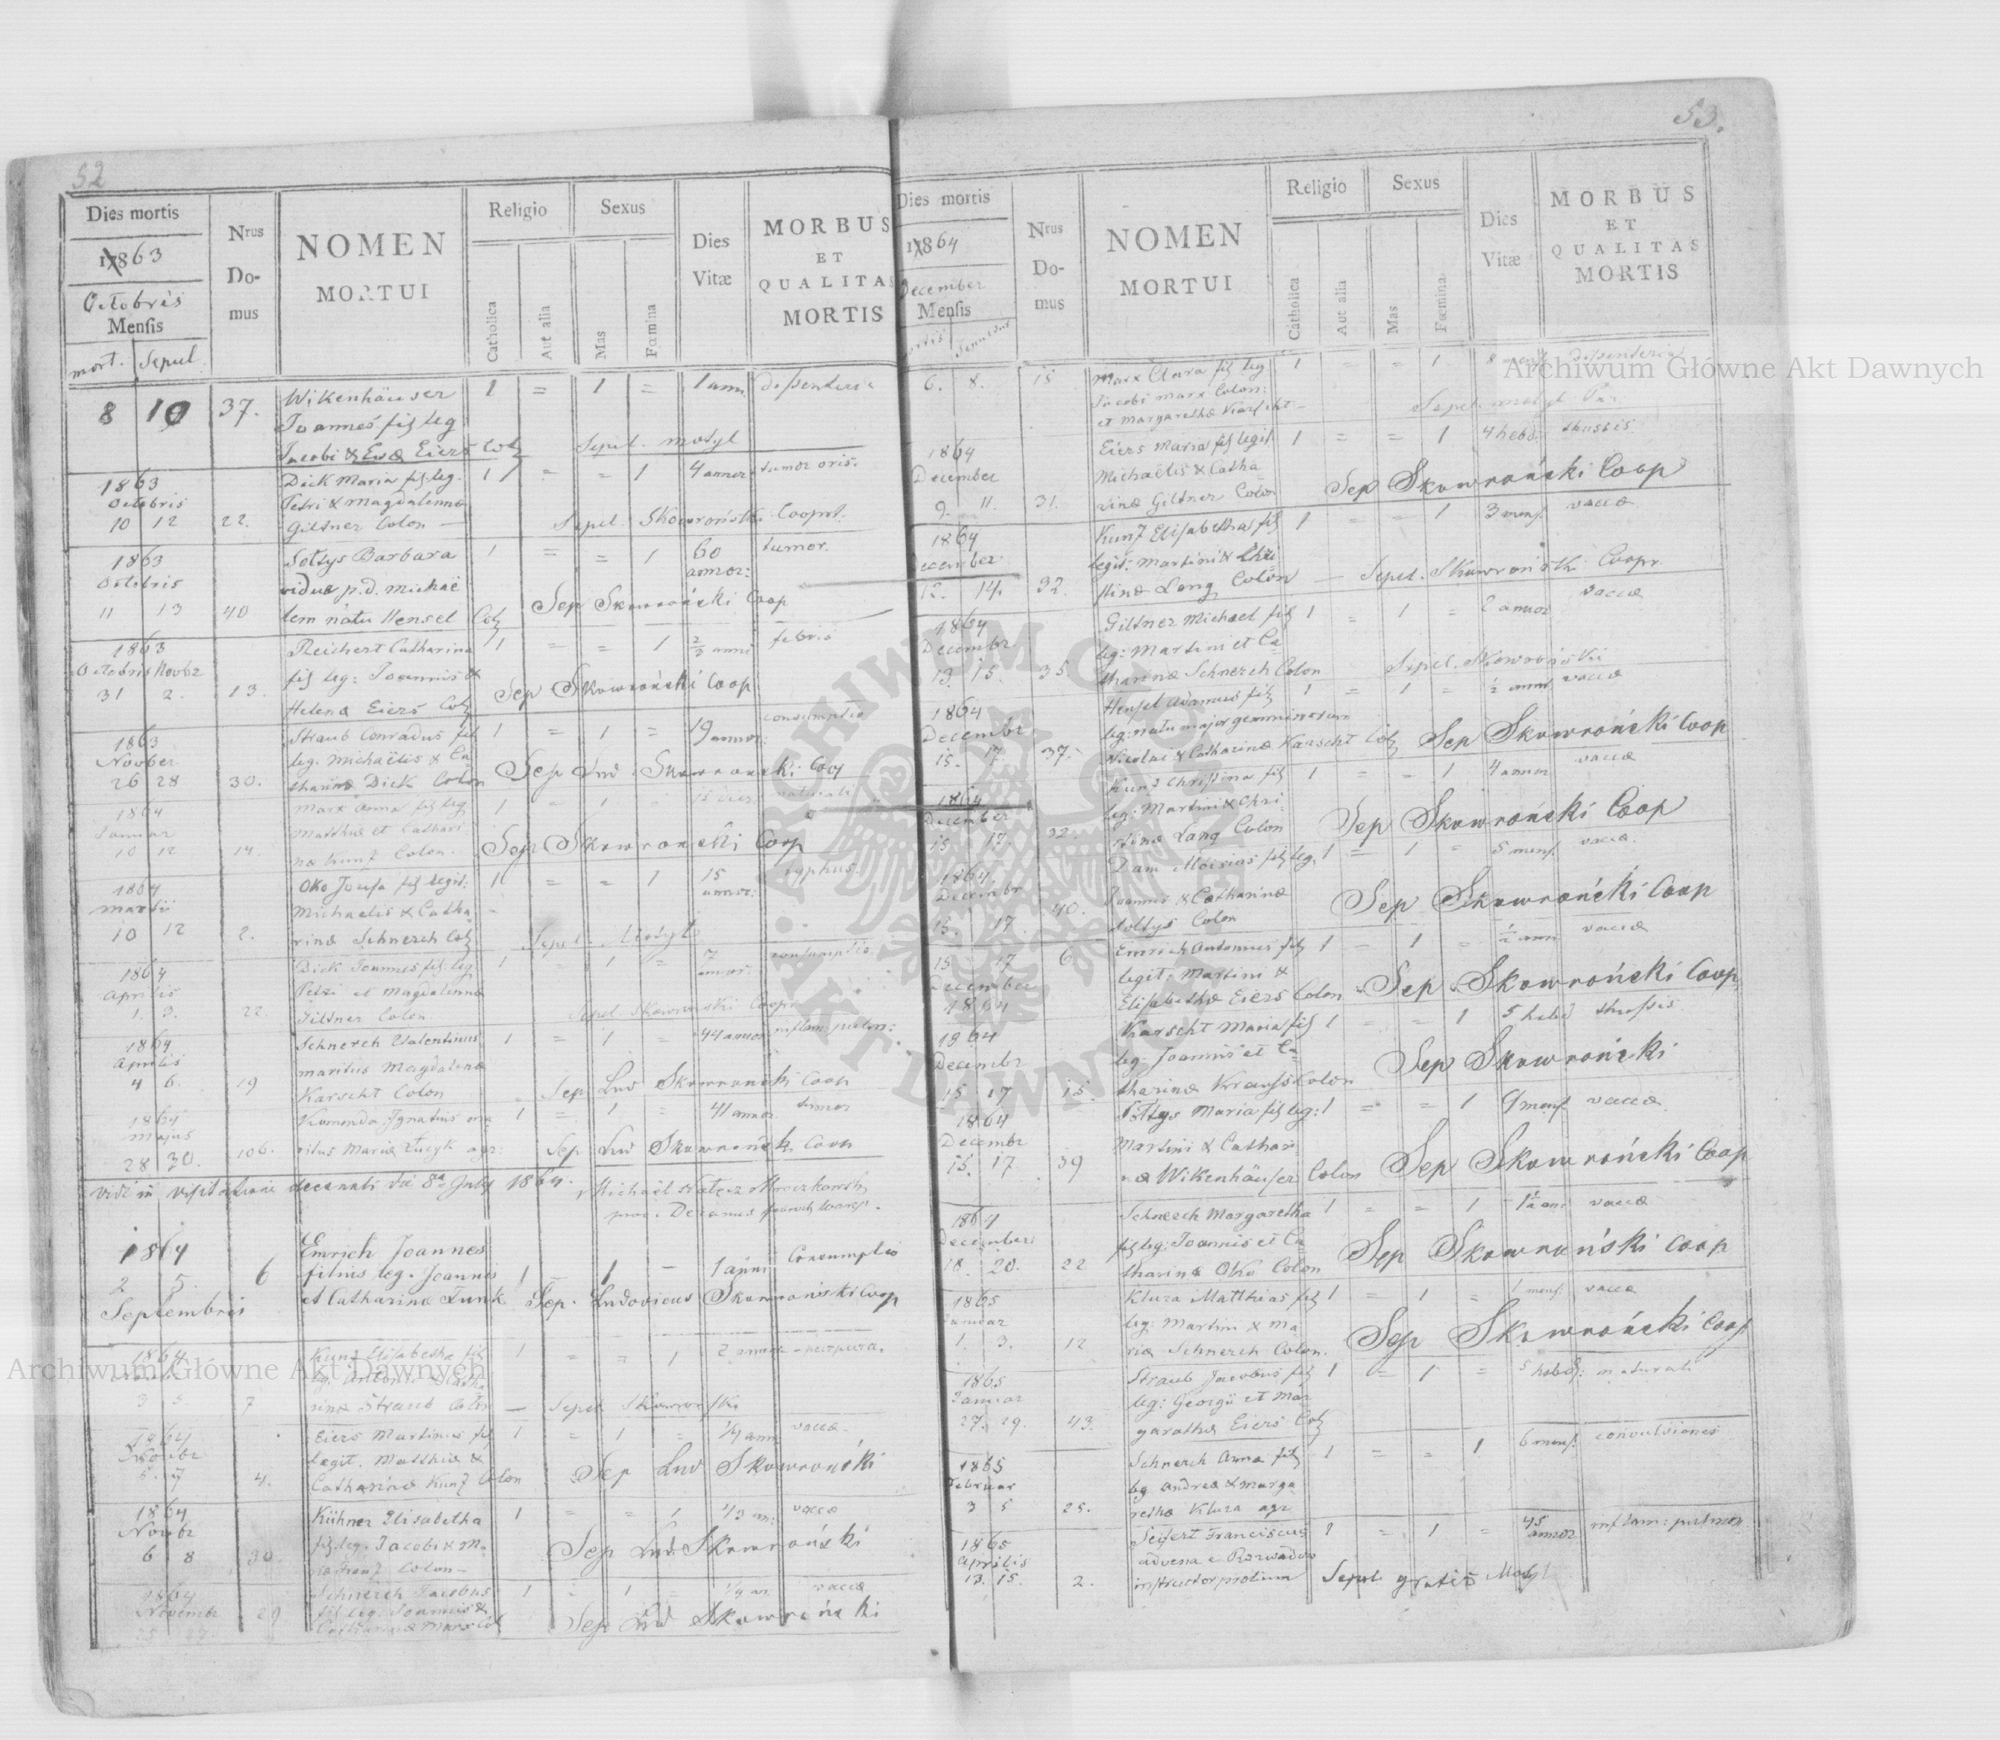 52
Dies mortis
1863
Octobris
Mensis
mort. Sepul.
Nrus
Do-
mus
NOMEN
MORTUI
Religio
Catholica
Aut alia
Sexus
Mas
Fœmina
Dies
Vitæ
MORBUS
ET
QUALITA
MORTIS
8 10 37. Wikenhäuser 1 = 1 = 1 ann. dissenteria
Joannes fil leg
Jacobi & Evæ Eiers Col Sepel. Motyl
1863 Dick Maria fil. leg. 1 = = 1 4 annor tumor oris.
Octobris Petri & Magdalennæ
10 12 22. Giltner Colon — Sepel. Skowroński Cooprt.
1863 Soltys Barbara 1 = = 1 60 tumor.
Octobris vidua p.d. Michaë annor:
11 13 40 lem natu Hensel Col Sep Skowroński Coop
1863 Reichert Catharina 1 = = 1 anni febris
Octobris Novbr fil leg: Joannis &
31 2. 13. Helenæ Eiers Col Sep Skowroński Coop
1863 Straub Conradus fil 1 = 1 = 19 consumptio
Novber leg. Michaëlis & Ca annor:
26 28 30. tharinæ Dick Colon Sep Lud. Skowronski Coop
1864 Marx Anna fil leg 1 = 1 naturali
Januar Matthiæ et Cathari
10 12 14. næ Kunz Colon. Sep Skowroński Coop
1864 Oko Josefa fil legit: 1 = = 1 15 typhus.
Martii Michaelis & Catha annor:
10 12 2. rinæ Schnerch Col Sepel. Motyl
1864 Dick Joannes fil. leg. 1 = 1 = 17 consumptio
Aprilis Petri et Magdalennæ annor.
1. 3. 22. Giltner Colon. Sepel Skowronski Coopr
1864 Schnerch Valentinus 1 = 1 = 44 annor inflam. pulm:
Aprilis maritus Magdalenæ
4 6. 19 Karscht Colon Sep Lud Skowronski Coop
1864 Komenda Ignatius ma 1 = 1 = 41 annor tumor
Majus
28 30. 106. ritus Mariæ Łucyk agr: Sep Lud Skowroński Coop
Vidi in visitatione decanali die 8a July 1864. Michaël
1864 Emrich Joannes
2 5. 6 filius leg. Joannis 1 — 1 — 1 anni Consumptio
Septembris et Catharinæ Funk Sep. Ludovicus Skowroński Coop
1864 Kunz Elisabetha fil 1 = = 1 2 annor purpura.
leg. Antonii & Catha
3 5. 7 rinæ Straub Colon — Sepel Skowroński
1864 Eiers Martinus fil 1 = 1 = 1/4 ann vacca.
Novbr legit. Matthiæ &
5. 7 4. Catharinæ Kunz Colon Sep Lud Skowroński
1864 Kühner Elisabetha 1 = = 1 1/3 an: vacca
Novbr fil. leg. Jacobi & Ma
6 8 30. riæ Franz Colon — Sep Lud Skowroński
1864 Schnerch Jacobus 1 = 1 = 1/4 an vacca
Novembr 29 fil. leg. Joannis &
25 27 Catharinæ Marx Col Sep Lud Skowroński
53.
Dies mortis
1864
December
Mensis
mortis Sepultur
Nrus
Do-
mus
NOMEN
MORTUI
Religio
Catholica
Aut alia
Sexus
Mas
Fœmina
Dies
Vitæ
MORBUS
ET
QUALITAS
MORTIS
6. 8. 15 Marx Clara fil leg 1 = = 1 8 mens dissenteria
Jacobi Marx Colon:
et Margarethæ Karscht — Sepel. Motyl Par.
1864 Eiers Maria fil legit 1 = = 1 4 hebd. thussis
December Michaëlis & Catha
9. 11 31. rinæ Giltner Colon Sep Skowroński Coop
1864 Kunz Elisabetha fil 1 = = 1 3 mens. vacca
December legit: Martini & Chri
12. 14. 32. stinæ Lang Colon — Sepel. Skowroński Coopr.
1864 Giltner Michael fil 1 = 1 = 2 annor vacca
Decembr leg: Martini et Ca
13. 15. 35. tharinæ Schnerch Colon Sepel. Skowroński
1864 Hensel Adamus fil 1 = 1 = 1/2 anni vacca
Decembr leg: natu major gemminorum
15. 17 37. Nicolai & Catharinæ Karscht Col Sep Skowroński Coop
1864 Kunz Christina fil 1 = = 1 4 annor vacca
December leg: Martini & Chri
15. 17. 32. stinæ Lang Colon Sep Skowroński Coop
1864. Dam Aloisius fil leg. 1 = 1 = 5 mens. vacca.
Decembr Joannis & Catharinæ
15. 17 40. Soltys Colon Sep Skowroński Coop
15 17 6 Emrich Antonius fil 1 = 1 = 1/2 ann vacca
December legit: Martini &
1864 Elisabethæ Eiers Colon Sep Skowroński Coop
1864 Karscht Maria fil 1 = = 1 5 hebd thussis
Decembr leg: Joannis et Ca
15 17 15. tharinæ Krauss Colon Sep Skowroński
1864 Soltys Maria fil leg: 1 = = 1 9 mens. vacca
Decembr Martini & Cathari
15. 17. 39 næ Wikenhäuser Colon Sep Skowroński Coop
1864 Schnerch Margaretha 1 = = 1 1 1/2 an: vacca
December fil leg: Joannis et Ca
18. 20. 22 tharinæ Oko Colon Sep Skowroński Coop
1865 Kluza Matthias fil 1 = 1 = 1 mens. vacca
Januar leg: Martini & Ma
1. 3. 12 riæ Schnerch Colon. Sep Skowroński Coop
1865 Straub Jacobus fil 1 = 1 = 5 hebd: naturali
Januar leg: Georgii et Mar
27. 29. 43. garethæ Eiers Col
1865 Schnerch Anna fil 1 = = 1 6 mens. convulsiones
Februar leg Andreæ & Marga
3 5 25. rethæ Kluza agr
1865 Seifert Franciscus 1 = 1 = 45 annor inflam: pulmon
Aprilis advena e Rozwadow
13. 15. 2. instructor prolium Sepul gratis Motyl
Archiwum Główne Akt Dawnych
Archiwum Główne Akt Dawnych
ARCHIWUM GŁÓWNE AKT DAWNYCH